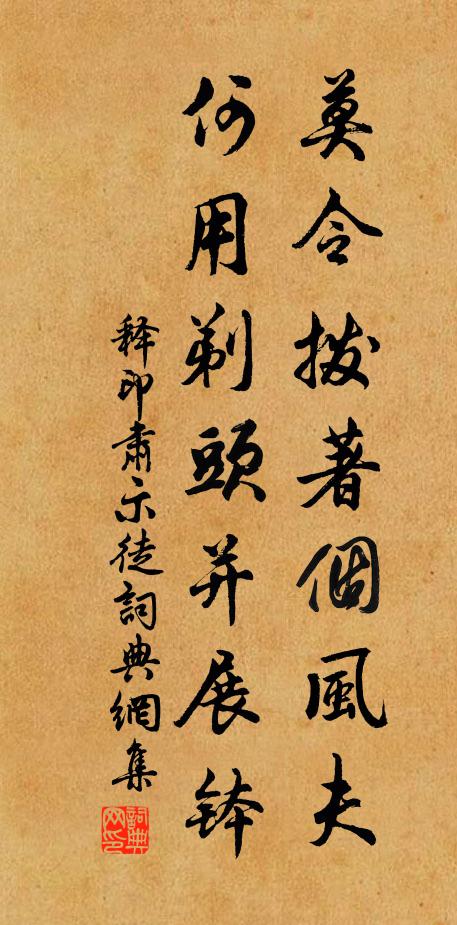 莫令撥著個風夫
何用剃頭并展缽
釋印肅示徒詞典網集
詞典网印